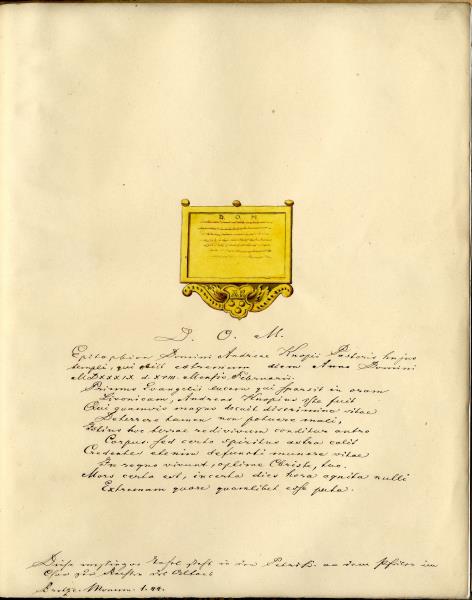 D. O. M.
D. O. M.
Epitaphium Domini Andreae Knopii Pastoris hujus
templi, qui obiit extremum diem Anno Domini
MDXXXIX d. XVIII Mensis Februarii.
Primus Evangelii lucem qui sparsit in oram
Livonicam, Andreas Knopius iste fuit
Qui quamvis magno docuit discrimine vitae
Deterrere tamen non potuere mali,
hoc terrae redivivum conditur antro
Corpus. sed certo spiritus astra colit
Credentes etenim defuncti munere vitae
In regno vivunt, optime Christe, tuo.
Mors certa est, incerta dies hora agnita nulli
Extremam quare quamlibet esse puta.
Diese messingne Tafel steht in der Petri K. an dem Pfeiler im
Chor zur Rechten des Altars
Brotze Monum. 1.44.